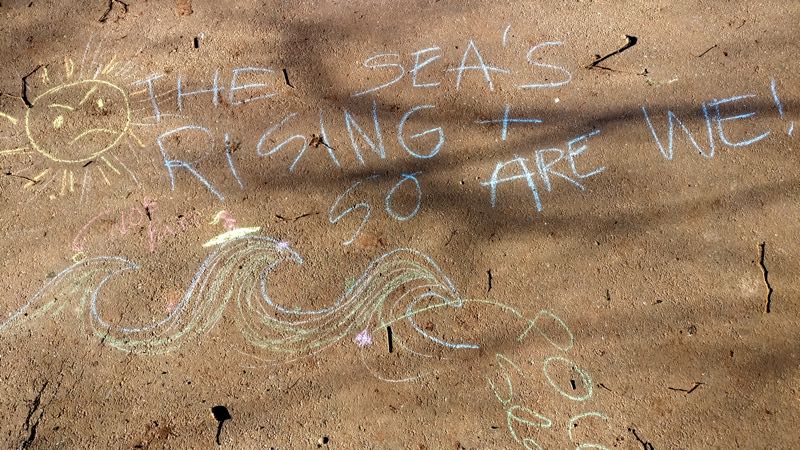 THE SEA'S
RISING +
SO ARE WE!